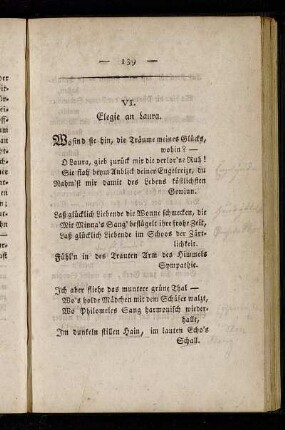 — 139 —
VI.
Elegie an Laura.
Wo sind sie hin, die Träume meines Glücks,
wohin? —
O Laura, gieb zurück mir die verlor'ne Ruh!
Sie floh beym Anblick deiner Engelreize, du
Nahm'st mir damit des Lebens köstlichsten
Gewinn.
Laß glücklich Liebende die Wonne schmecken, die
Mir Minna's Sang' beflügelt ihre frohe Zeit,
Laß glücklich Liebende im Schoos der Zärt-
lichkeit
Fühl'n in des Trauten Arm des Himmels
Sympathie.
Ich aber fliehe das muntere grüne Thal —
Wo's holde Mädchen mit dem Schäfer walzt,
Wo Philomeles Sang harmonisch wieder-
hallt,
Im dunkeln stillen Hain, im lauten Echo's
Schall.